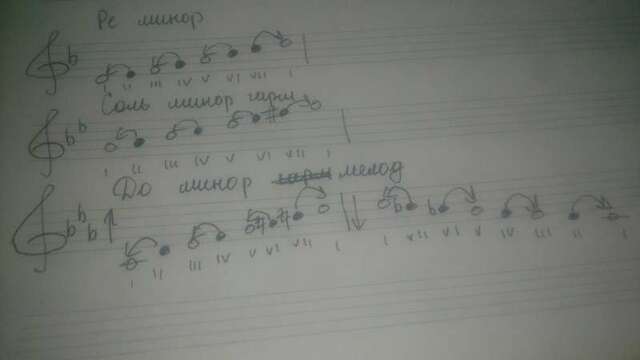 Ре минор
I II III IV V VI VII I
Соль минор гарм
I II III IV V VI VII I
До минор мелод
I II III IV V VI VII I I VII VI V IV III II I